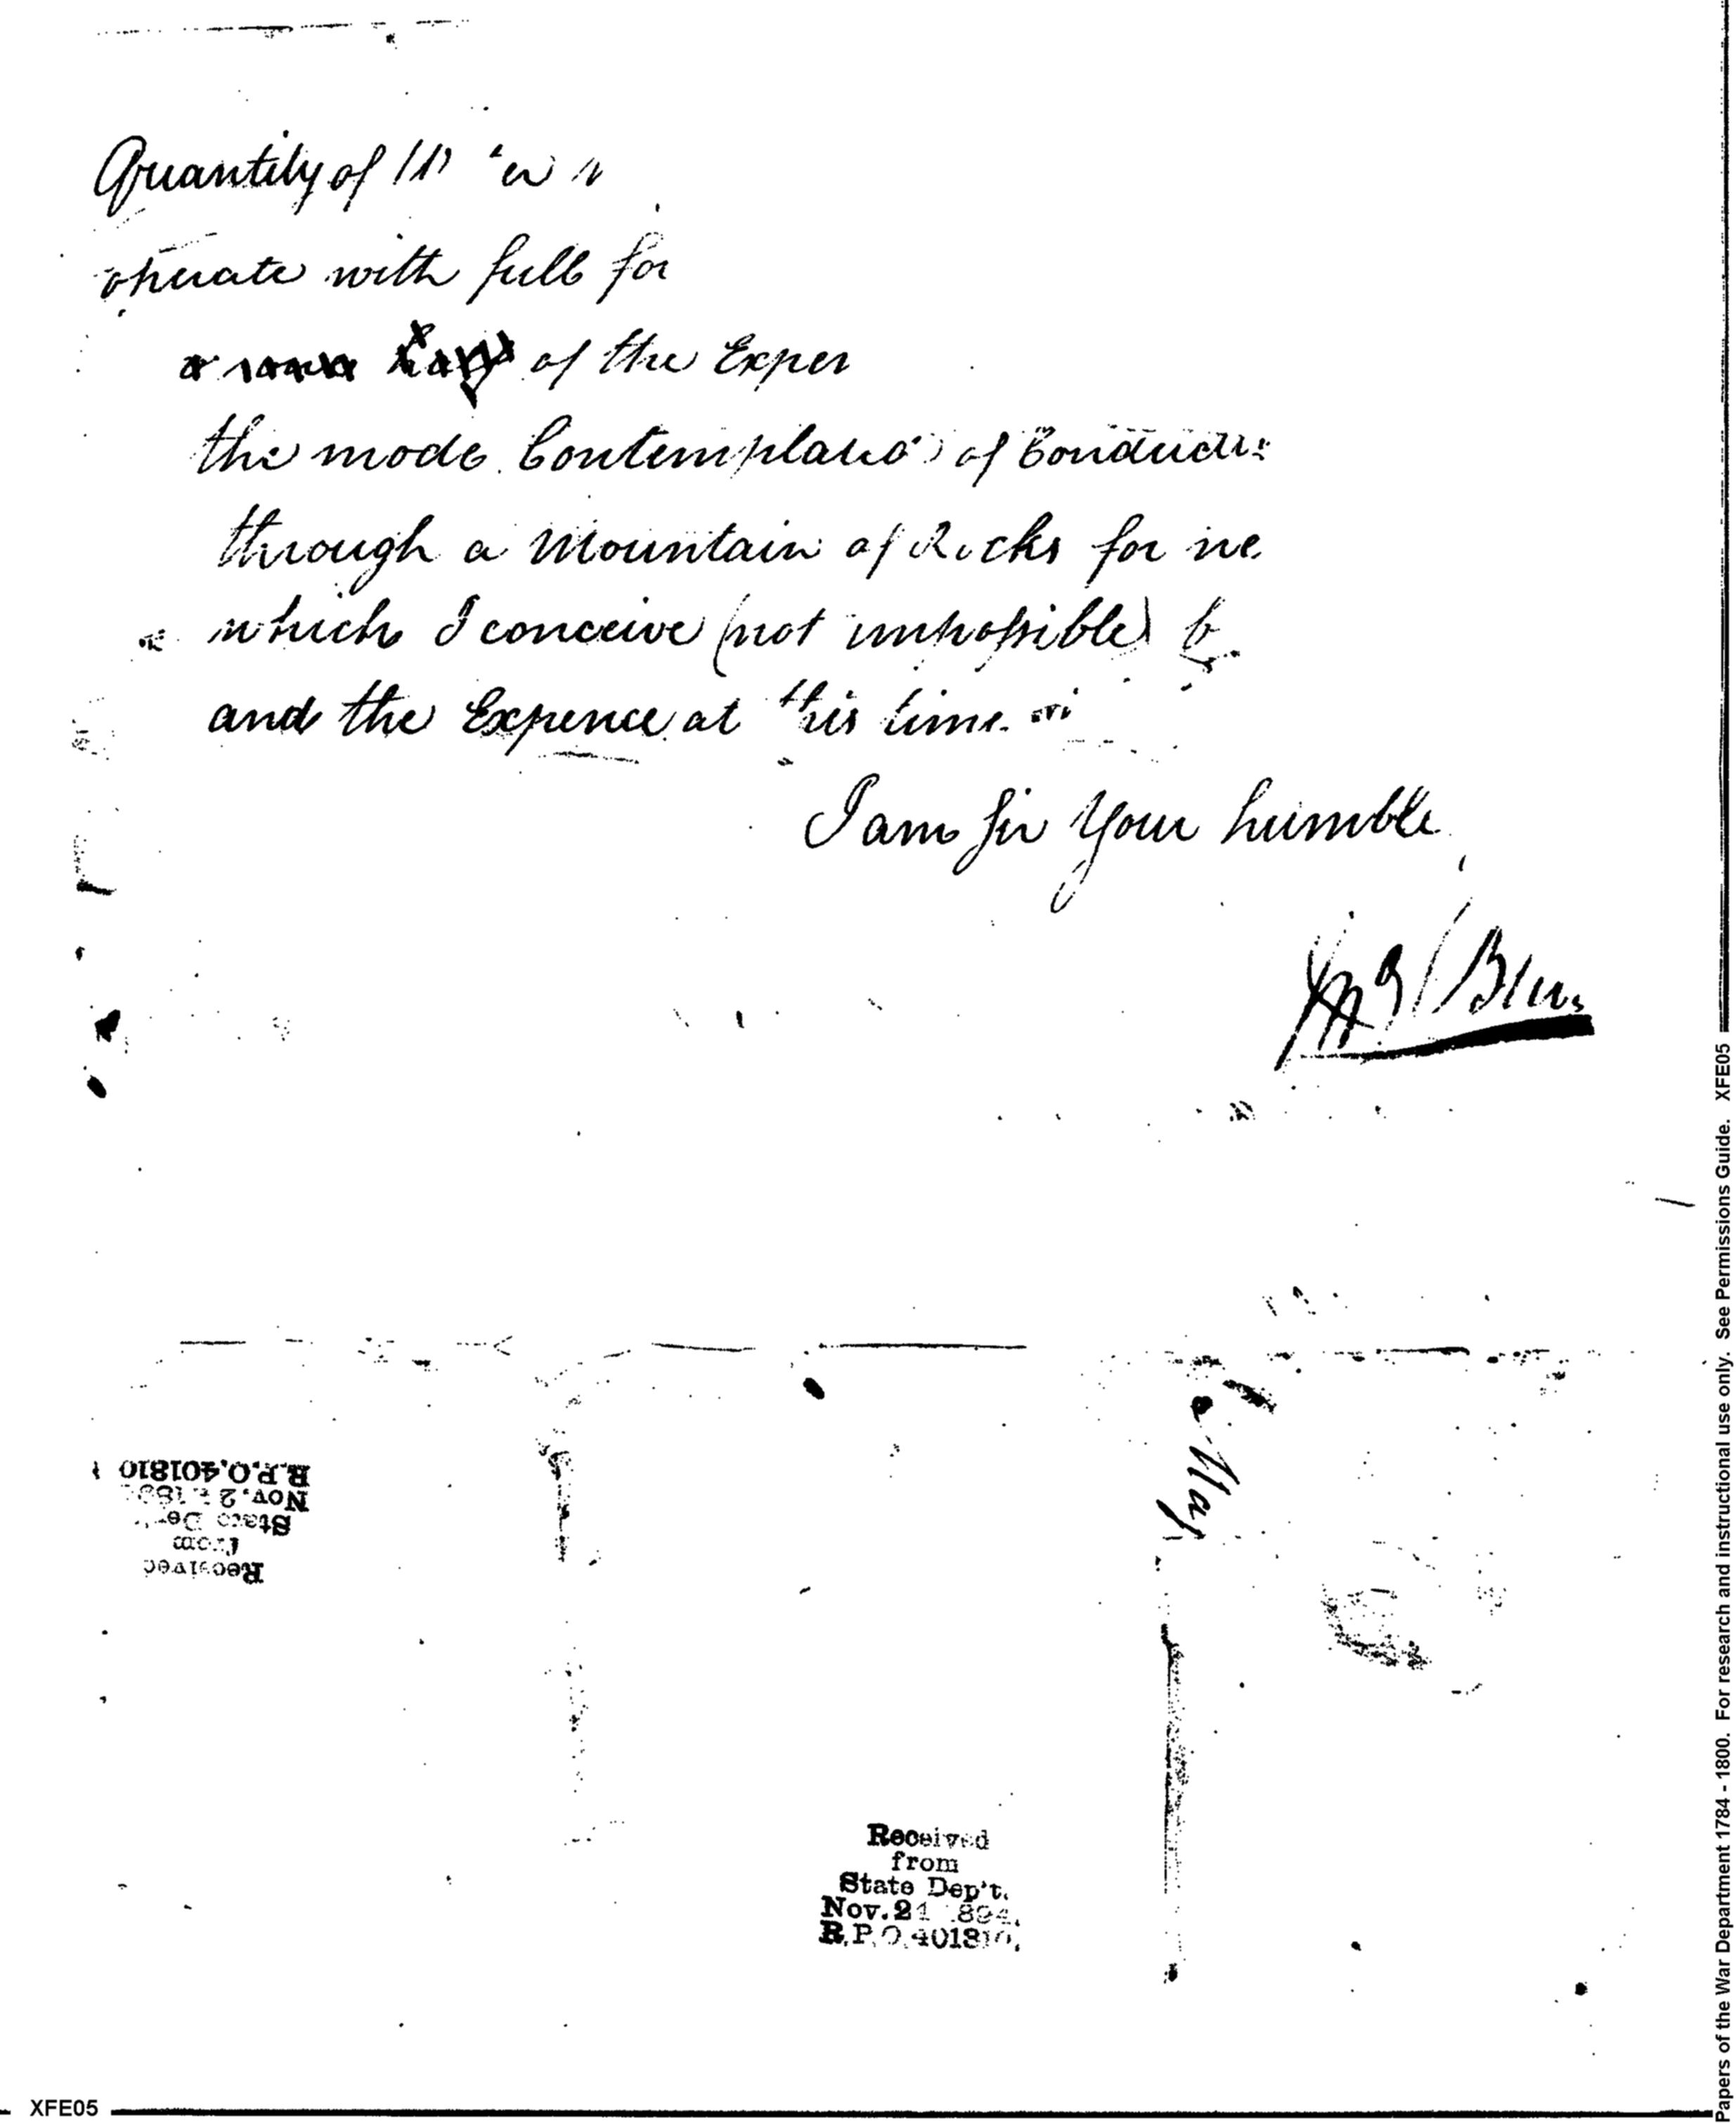 Quantity of
operate with full for
of the Exper
the mode Contemplated of Conduct
through a Mountain of Rocks for ne
which I conceive (not impossible) b
and the Expence at this time
I am Sir Your humble
May
R.P.O.401810
Nov. 2
State De
from
Received
Received
from
State Dep't.
Nov. 21 1894.
R.P.O.401810.
Papers of the War Department 1784 - 1800. For research and instructional use only. See Permissions Guide. XFE05
XFE05